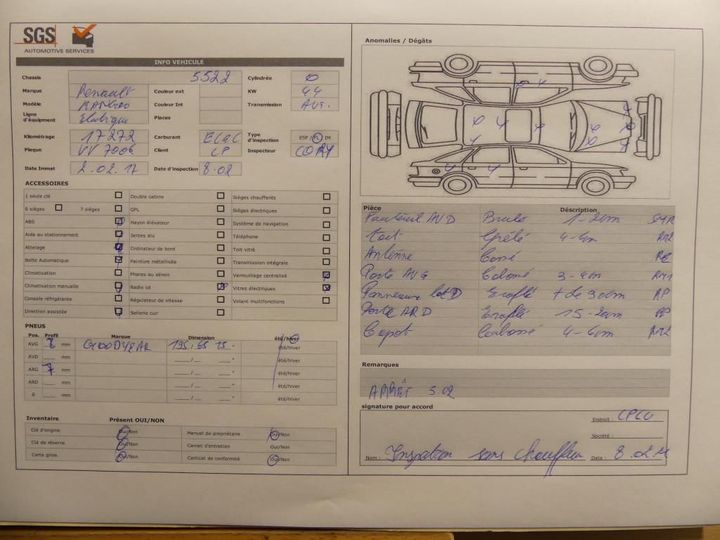 SGS
AUTOMOTIVE SERVICES
INFO VEHICULE
Chassis 5522 Cylindrée 0
Marque Renault Couleur ext KW 44
Modèle KANGOO Couleur Int Transmission Aut.
Ligne d'équipement électrique Places
Kilométrage 17272 Carburant ELEC Type d'inspection ESP PL IM
Plaque VV 7006 Client LP Inspecteur CORY
Date Immat 2.02.17 Date d'inspection 8.02
ACCESSOIRES
1 seule clé Double cabine Sièges chauffants
6 sièges 7 sièges GPL Sièges électriques
ABS Hayon élévateur Système de navigation
Aide au stationnement Jantes alu Téléphone
Attelage Ordinateur de bord Toit vitré
Boîte Automatique Peinture métallisée Transmission intégrale
Climatisation Phares au xénon Verrouillage centralisé
Climatisation manuelle Radio cd Vitres électriques
Console réfrigérante Régulateur de vitesse Volant multifonctions
Direction assistée Sellerie cuir
PNEUS
Pos. Profil Marque Dimension été/hiver
AVG 8 mm GOODYEAR 195/65 15 " été/hiver
AVD mm __/__ " été/hiver
ARG 7 mm __/__ " été/hiver
ARD mm __/__ " été/hiver
R mm __/__ " été/hiver
Inventaire Présent OUI/NON
Clé d'origine Oui/Non Manuel de propriétaire Oui/Non
Clé de réserve Oui/Non Carnet d'entretien Oui/Non
Carte grise Oui/Non Certificat de conformité Oui/Non
Anomalies / Dégâts
Pièce Déscription
Fauteuil AVD Brulé 1-2cm
toit Grêlé 4-4cm
Antenne Cassé
Porte AVG 3-4cm
Panneau lat D Eraflé + de 30cm RP
Porte ARD Eraflé 15-20cm RP
Capot 4-4cm
Remarques
ARRÊT 3.02
signature pour accord
Endroit : CPLU
Société :
Nom : Inspection sans chauffeur Date : 8.02.